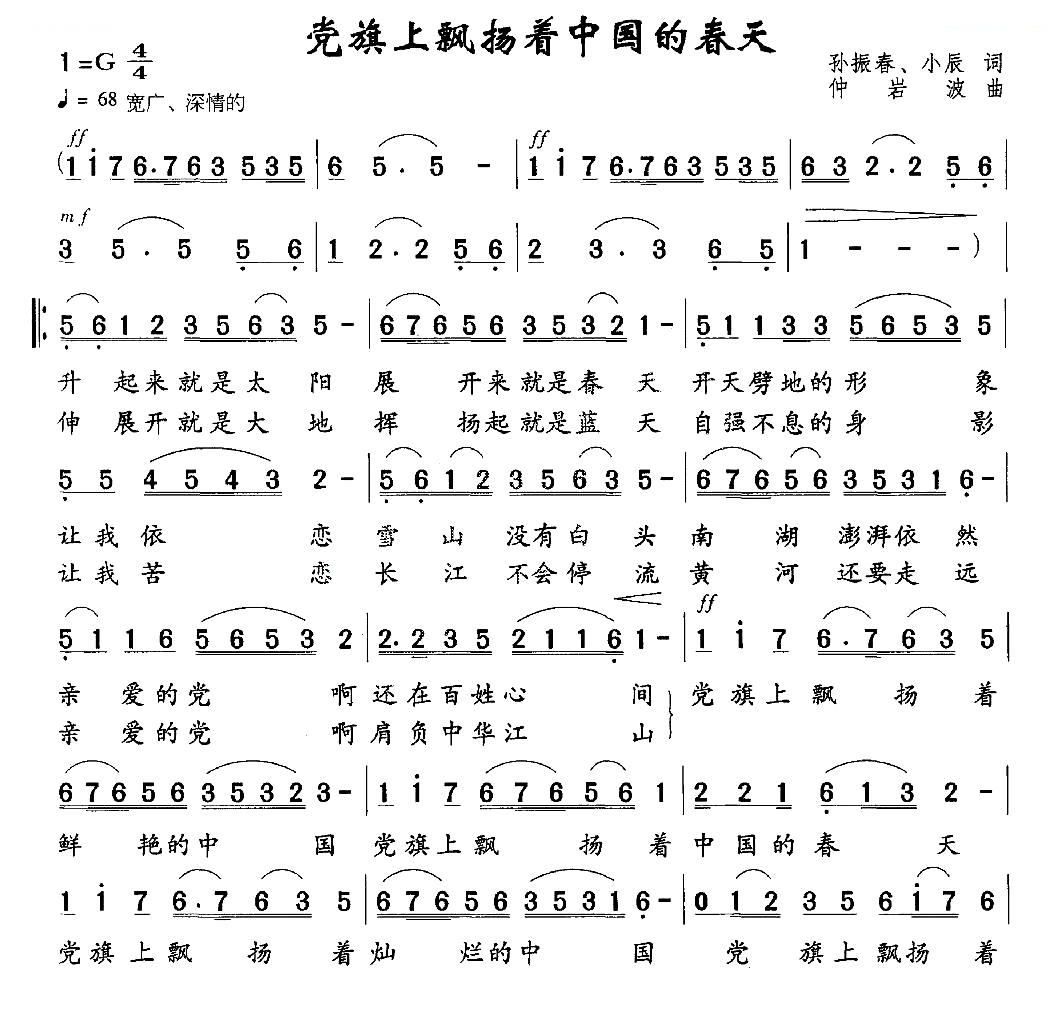 党旗上飘扬着中国的春天
1=G 4/4
♩= 68 宽广、深情的
孙振春、小辰 词
仲岩波 曲
ff ff
(1 i 7 6·7 6 3 5 3 5 | 6 5 · 5 - | 1 i 7 6·7 6 3 5 3 5 | 6 3 2 · 2 5 6 |
mf
3 5 · 5 5 6 | 1 2 · 2 5 6 | 2 3 · 3 6 5 | 1 - - - ) |
‖: 5 6 1 2 3 5 6 3 5 - | 6 7 6 5 6 3 5 3 2 1 - | 5 1 1 3 3 5 6 5 3 5 |
升 起来就是太 阳 展 开来就是春 天 开天劈地的形 象
伸 展开就是大 地 挥 扬起就是蓝 天 自强不息的身 影
5 5 4 5 4 3 2 - | 5 6 1 2 3 5 6 3 5 - | 6 7 6 5 6 3 5 3 1 6 - |
让我依 恋 雪 山 没有白 头 南 湖 澎湃依 然
让我苦 恋 长 江 不会停 流 黄 河 还要走 远
ff
5 1 1 6 5 6 5 3 2 | 2·2 3 5 2 1 1 6 1 - | 1 i 7 6·7 6 3 5 |
亲 爱的党 啊 还在百姓心 间 党旗上飘 扬 着
亲 爱的党 啊 肩负中华江 山
6 7 6 5 6 3 5 3 2 3 - | 1 i 7 6 7 6 5 6 1 | 2 2 1 6 1 3 2 - |
鲜 艳的中 国 党旗上飘 扬 着 中国的春 天
1 i 7 6·7 6 3 5 | 6 7 6 5 6 3 5 3 1 6 - | 0 1 2 3 5 6 i 7 6 |
党旗上飘 扬 着 灿 烂的中 国 党 旗上飘扬 着